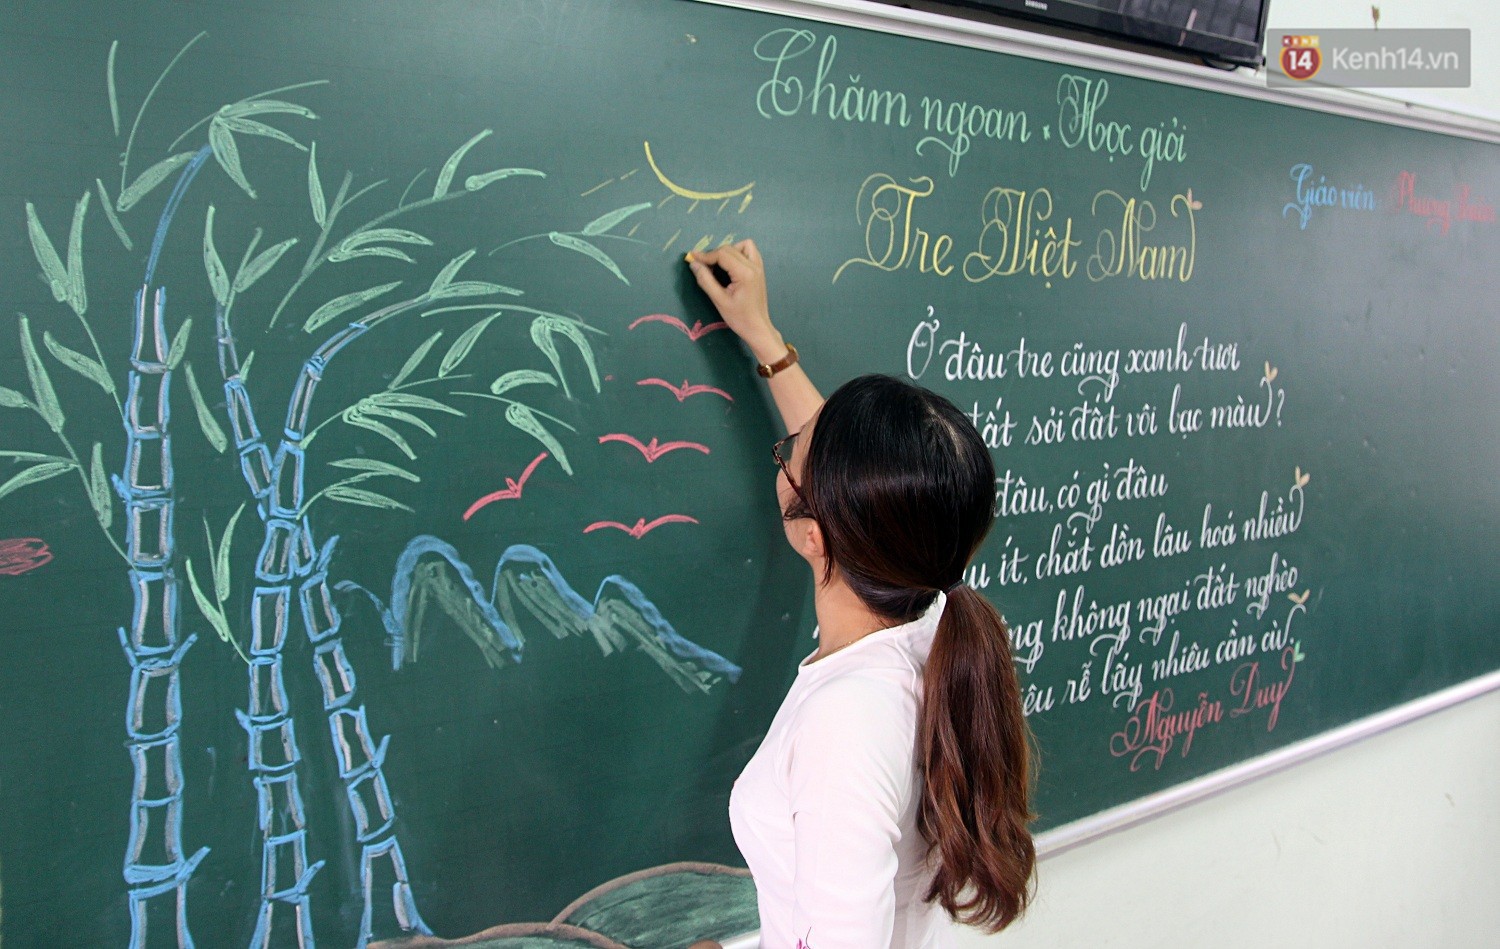 SAMSUNG
KENH 14 Kenh14.vn
Chăm ngoan * Học giỏi
Giáo viên:
Tre Việt Nam
Ở đâu tre cũng xanh tươi
đất sỏi đất vôi bạc màu?
đâu, có gì đâu
ít, chắt dồn lâu hoá nhiều
không ngại đất nghèo
rễ bấy nhiêu cần cù.
Nguyễn Duy